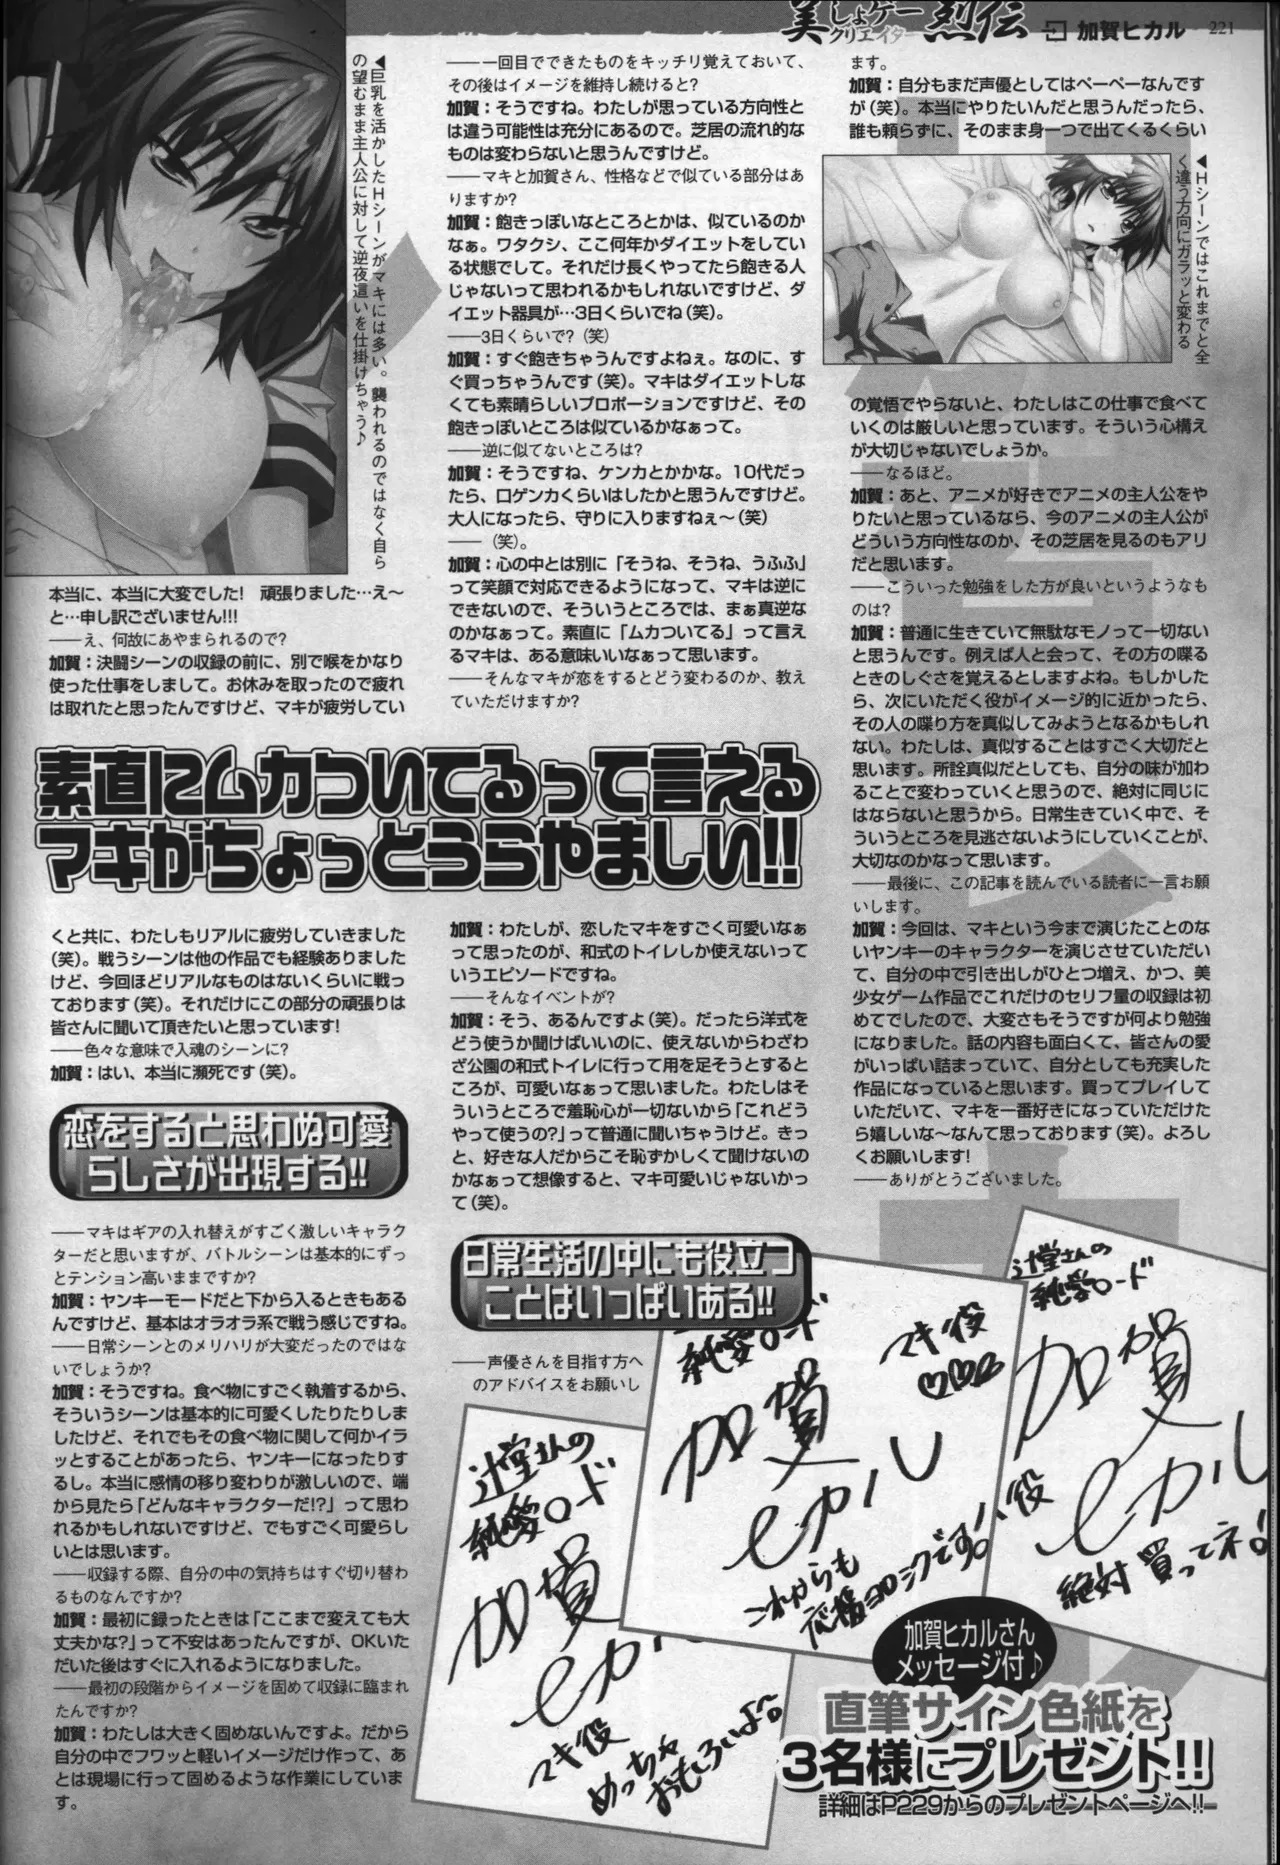 美しょゲー
クリエイター
烈伝
加賀ヒカル
221
本当に、本当に大変でした! 頑張りました…え〜
と…申し訳ございません!!!
――え、何故にあやまられるので?
加賀:決闘シーンの収録の前に、別で喉をかなり
使った仕事をしまして。お休みを取ったので疲れ
は取れたと思ったんですけど、マキが疲労してい
素直にムカついてるって言える
マキがちょっとうらやましい!!
くと共に、わたしもリアルに疲労していきました
(笑)。戦うシーンは他の作品でも経験ありました
けど、今回ほどリアルなものはないくらいに戦っ
ております(笑)。それだけにこの部分の頑張りは
皆さんに聞いて頂きたいと思っています!
――色々な意味で入魂のシーンに?
加賀:はい、本当に瀕死です(笑)。
恋をすると思わぬ可愛
らしさが出現する!!
――マキはギアの入れ替えがすごく激しいキャラク
ターだと思いますが、バトルシーンは基本的にずっ
とテンション高いままですか?
加賀:ヤンキーモードだと下から入るときもある
んですけど、基本はオラオラ系で戦う感じですね。
――日常シーンとのメリハリが大変だったのではな
いでしょうか?
加賀:そうですね。食べ物にすごく執着するから、
そういうシーンは基本的に可愛くしたりたりしま
したけど、それでもその食べ物に関して何かイラ
ッとすることがあったら、ヤンキーになったりす
るし。本当に感情の移り変わりが激しいので、端
から見たら「どんなキャラクターだ!?」って思わ
れるかもしれないですけど、でもすごく可愛らし
いとは思います。
――収録する際、自分の中の気持ちはすぐ切り替わ
るものなんですか?
加賀:最初に録ったときは「ここまで変えても大
丈夫かな?」って不安はあったんですが、OKいた
だいた後はすぐに入れるようになりました。
――最初の段階からイメージを固めて収録に臨まれ
たんですか?
加賀:わたしは大きく固めないんですよ。だから
自分の中でフワッと軽いイメージだけ作って、あ
とは現場に行って固めるような作業にしていま
す。
――一回目でできたものをキッチリ覚えておいて、
その後はイメージを維持し続けると?
加賀:そうですね。わたしが思っている方向性と
は違う可能性は充分にあるので。芝居の流れ的な
ものは変わらないと思うんですけど。
――マキと加賀さん、性格などで似ている部分はあ
りますか?
加賀:飽きっぽいなところとかは、似ているのか
なぁ。ワタクシ、ここ何年かダイエットをしてい
る状態でして。それだけ長くやってたら飽きる人
じゃないって思われるかもしれないですけど、ダ
イエット器具が…3日くらいでね(笑)。
――3日くらいで?(笑)
加賀:すぐ飽きちゃうんですよねぇ。なのに、す
ぐ買っちゃうんです(笑)。マキはダイエットしな
くても素晴らしいプロポーションですけど、その
飽きっぽいところは似ているかなぁって。
――逆に似てないところは?
加賀:そうですね、ケンカとかかな。10代だっ
たら、口ゲンカくらいはしたかと思うんですけど。
大人になったら、守りに入りますねぇ〜(笑)
――(笑)。
加賀:心の中とは別に「そうね、そうね、うふふ」
って笑顔で対応できるようになって、マキは逆に
できないので、そういうところでは、まぁ真逆な
のかなぁって。素直に「ムカついてる」って言え
るマキは、ある意味いいなぁって思います。
――そんなマキが恋をするとどう変わるのか、教え
ていただけますか?
加賀:わたしが、恋したマキをすごく可愛いなぁ
って思ったのが、和式のトイレしか使えないって
いうエピソードですね。
――そんなイベントが?
加賀:そう、あるんですよ(笑)。だったら洋式を
どう使うか聞けばいいのに、使えないからわざわ
ざ公園の和式トイレに行って用を足そうとすると
ころが、可愛いなぁって思いました。わたしはそ
ういうところで羞恥心が一切ないから「これどう
やって使うの?」って普通に聞いちゃうけど。きっ
と、好きな人だからこそ恥ずかしくて聞けないの
かなぁって想像すると、マキ可愛いじゃないかっ
て(笑)。
日常生活の中にも役立つ
ことはいっぱいある!!
――声優さんを目指す方へ
のアドバイスをお願いし
ます。
加賀:自分もまだ声優としてはペーペーなんです
が(笑)。本当にやりたいんだと思うんだったら、
誰も頼らずに、そのまま身一つで出てくるくらい
の覚悟でやらないと、わたしはこの仕事で食べて
いくのは厳しいと思っています。そういう心構え
が大切じゃないでしょうか。
――なるほど。
加賀:あと、アニメが好きでアニメの主人公をや
りたいと思っているなら、今のアニメの主人公が
どういう方向性なのか、その芝居を見るのもアリ
だと思います。
――こういった勉強をした方が良いというようなも
のは?
加賀:普通に生きていて無駄なモノって一切ない
と思うんです。例えば人と会って、その方の喋る
ときのしぐさを覚えるとしますよね。もしかした
ら、次にいただく役がイメージ的に近かったら、
その人の喋り方を真似してみようとなるかもしれ
ない。わたしは、真似することはすごく大切だと
思います。所詮真似だとしても、自分の味が加わ
ることで変わっていくと思うので、絶対に同じに
はならないと思うから。日常生きていく中で、そ
ういうところを見逃さないようにしていくことが、
大切なのかなって思います。
――最後に、この記事を読んでいる読者に一言お願
いします。
加賀:今回は、マキという今まで演じたことのな
いヤンキーのキャラクターを演じさせていただい
て、自分の中で引き出しがひとつ増え、かつ、美
少女ゲーム作品でこれだけのセリフ量の収録は初
めてでしたので、大変さもそうですが何より勉強
になりました。話の内容も面白くて、皆さんの愛
がいっぱい詰まっていて、自分としても充実した
作品になっていると思います。買ってプレイして
いただいて、マキを一番好きになっていただけた
ら嬉しいな〜なんて思っております(笑)。よろし
くお願いします!
――ありがとうございました。
辻堂さんの
純愛ロード
加賀
ヒカル
マキ役
めっちゃ
おもろいよ〜
純愛ロード
マキ役
加賀
ヒカル
これからも
応援ヨロシクです!
辻堂さんの
純愛ロード
加賀
ヒカル
役
絶対買ってネ!
加賀ヒカルさん
メッセージ付♪
直筆サイン色紙を
3名様にプレゼント!!
詳細はP229からのプレゼントページへ!!